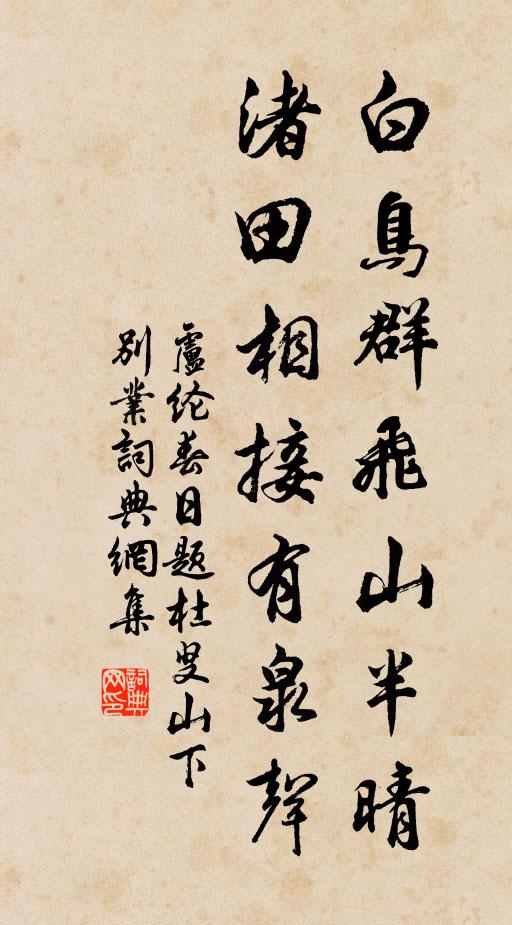 白鳥群飛山半晴
渚田相接有泉聲
盧纶春日題杜叟山下
別業詞典網集
詞典
网印